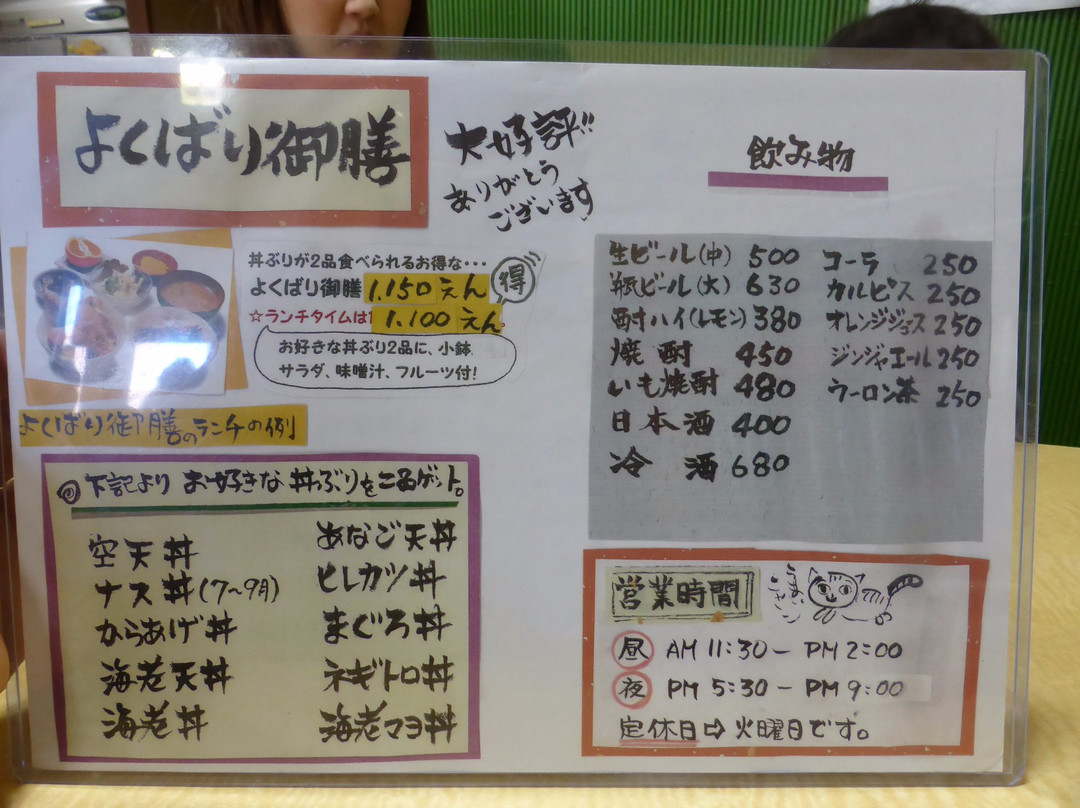 よくばり御膳
大好評!!
ありがとう
ございます
丼ぶりが2品食べられるお得な・・・
よくばり御膳 1.150えん
得
☆ランチタイムは 1.100えん。
お好きな丼ぶり2品に、小鉢
サラダ、味噌汁、フルーツ付!
よくばり御膳のランチの例
◎下記より お好きな丼ぶりを二品ゲット。
空天丼
ナス丼(7〜9月)
からあげ丼
海老天丼
海老丼
あなご天丼
ヒレカツ丼
まぐろ丼
ネギトロ丼
海老マヨ丼
飲み物
生ビール(中) 500
瓶ビール(大) 630
酎ハイ(レモン) 380
焼酎 450
いも焼酎 480
日本酒 400
冷酒 680
コーラ 250
カルピス 250
オレンジジュース 250
ジンジャエール 250
ウーロン茶 250
営業時間
昼 AM 11:30 − PM 2:00
夜 PM 5:30 − PM 9:00
定休日⇨火曜日です。